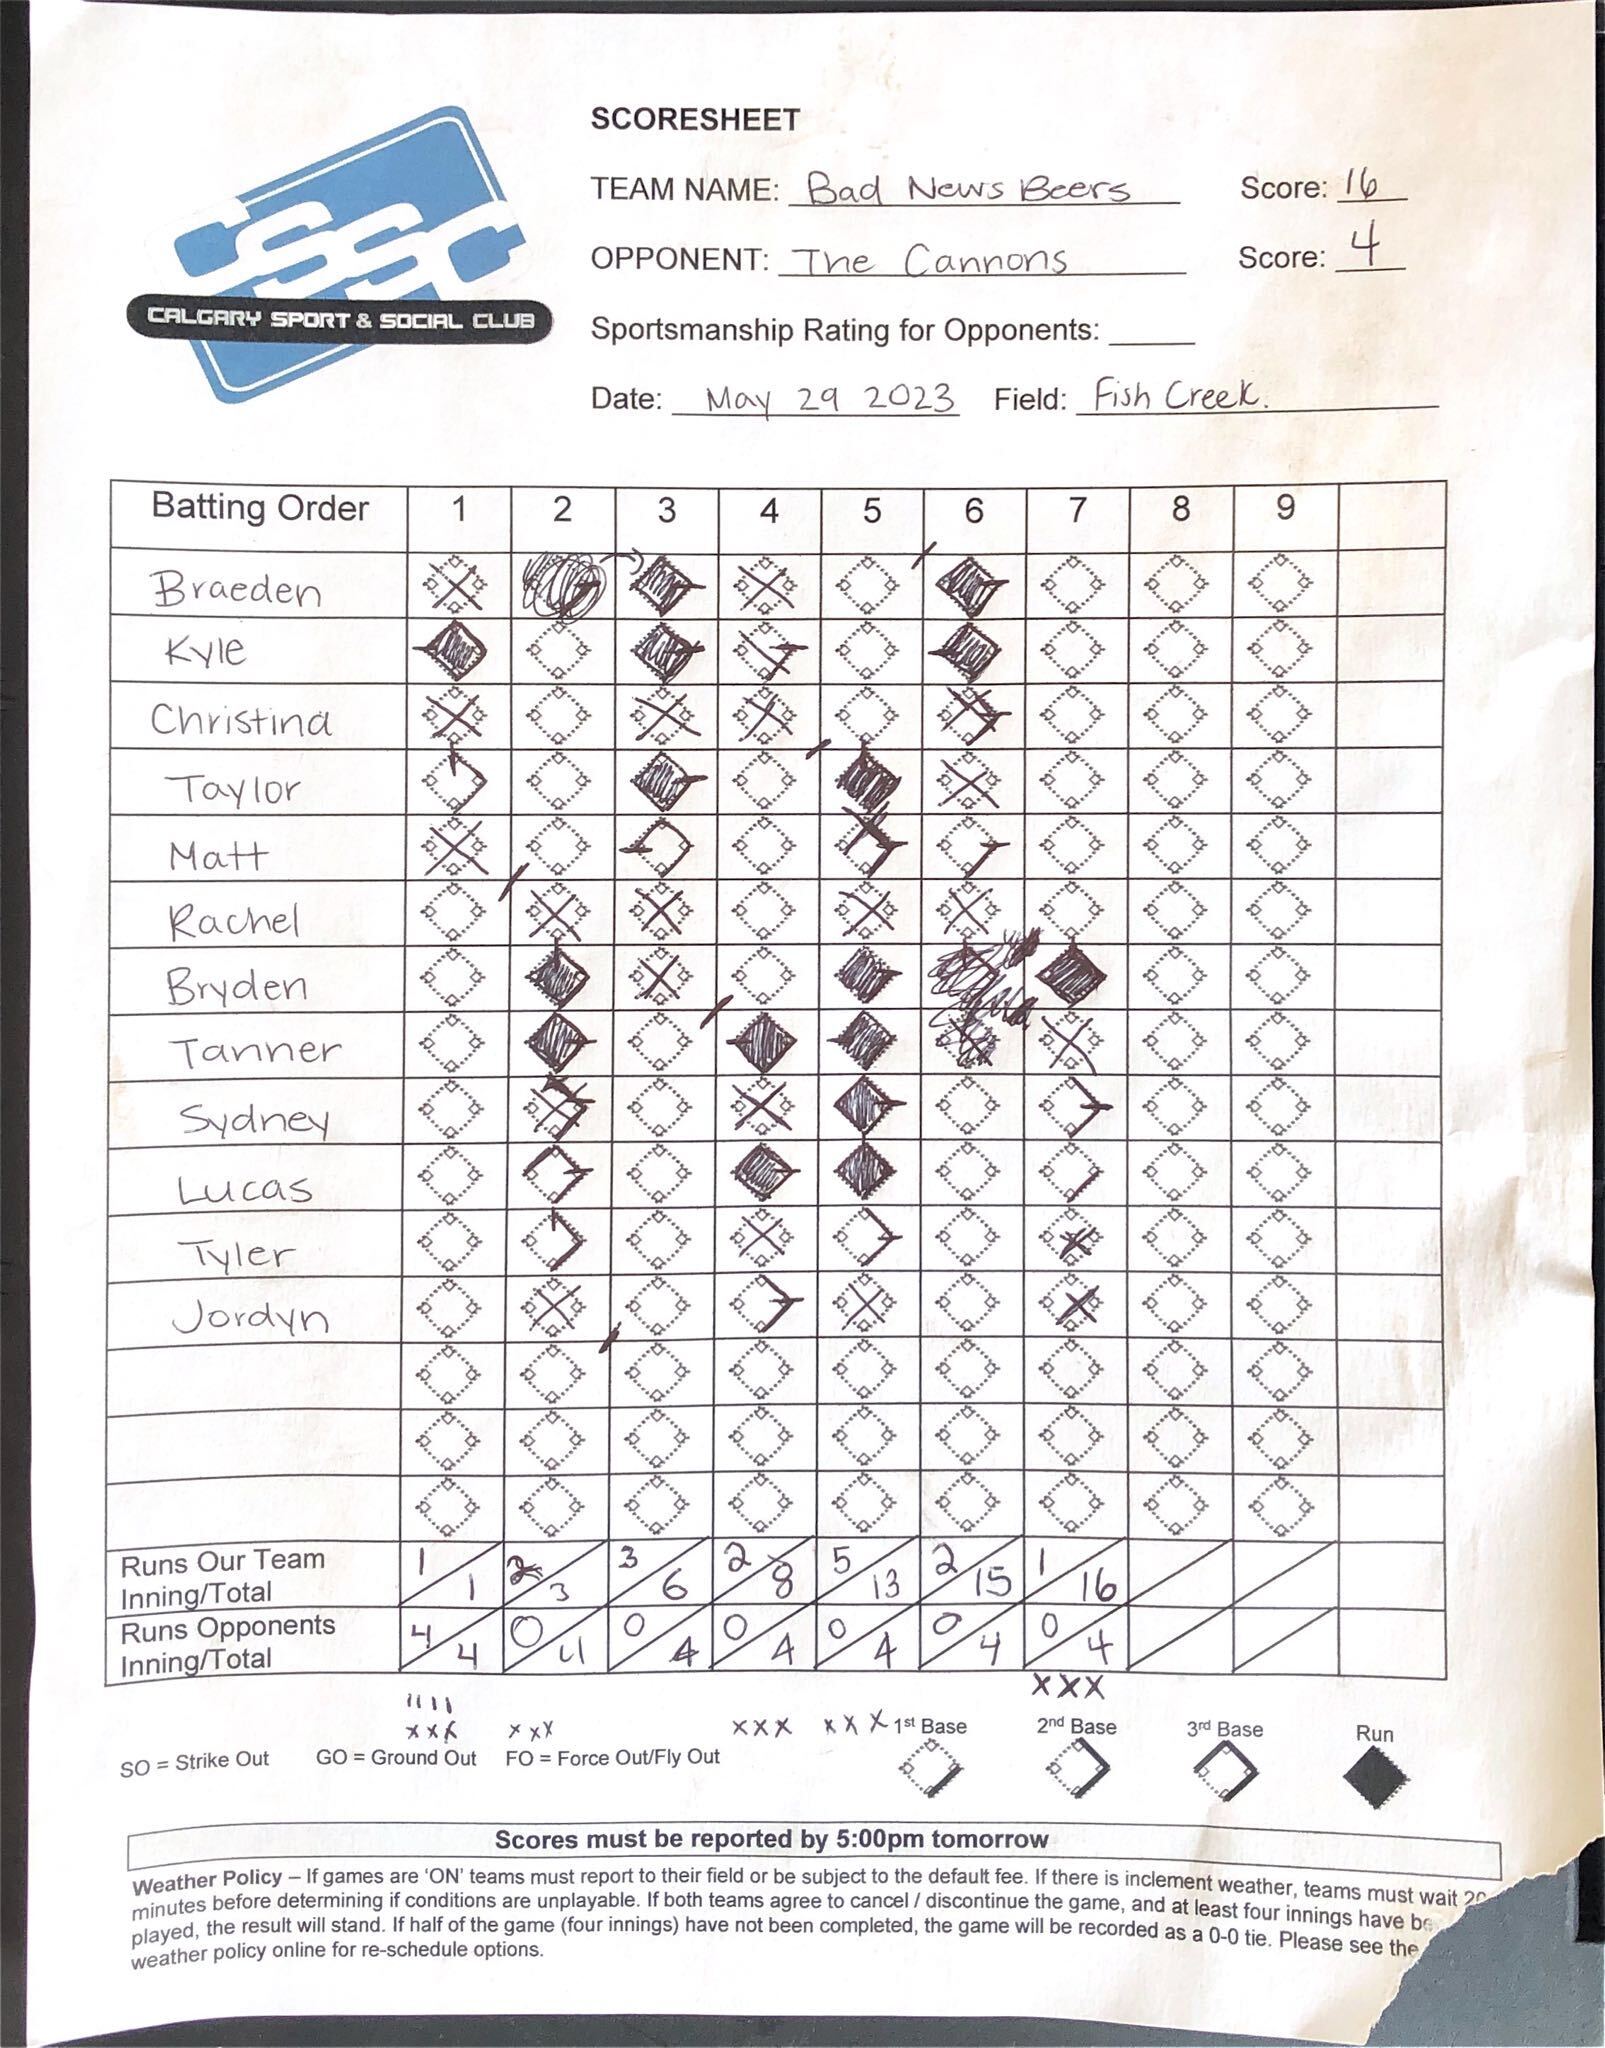 SCORESHEET
TEAM NAME: Bad News Beers Score: 16
OPPONENT: The Cannons Score: 4
Sportsmanship Rating for Opponents:
Date: May 29 2023 Field: Fish Creek.
CSSC
CALGARY SPORT & SOCIAL CLUB
Batting Order 1 2 3 4 5 6 7 8 9
Braeden
Kyle
Christina
Taylor
Matt
Rachel
Bryden
Tanner
Sydney
Lucas
Tyler
Jordyn
Runs Our Team
Inning/Total
1/1 2/3 3/6 2/8 5/13 2/15 1/16
Runs Opponents
Inning/Total
4/4 0/4 0/4 0/4 0/4 0/4 0/4
xxx
xxx xxx xxx xxx 1st Base 2nd Base 3rd Base Run
SO = Strike Out GO = Ground Out FO = Force Out/Fly Out
Scores must be reported by 5:00pm tomorrow
Weather Policy – If games are 'ON' teams must report to their field or be subject to the default fee. If there is inclement weather, teams must wait 20
minutes before determining if conditions are unplayable. If both teams agree to cancel / discontinue the game, and at least four innings have be
played, the result will stand. If half of the game (four innings) have not been completed, the game will be recorded as a 0-0 tie. Please see the
weather policy online for re-schedule options.